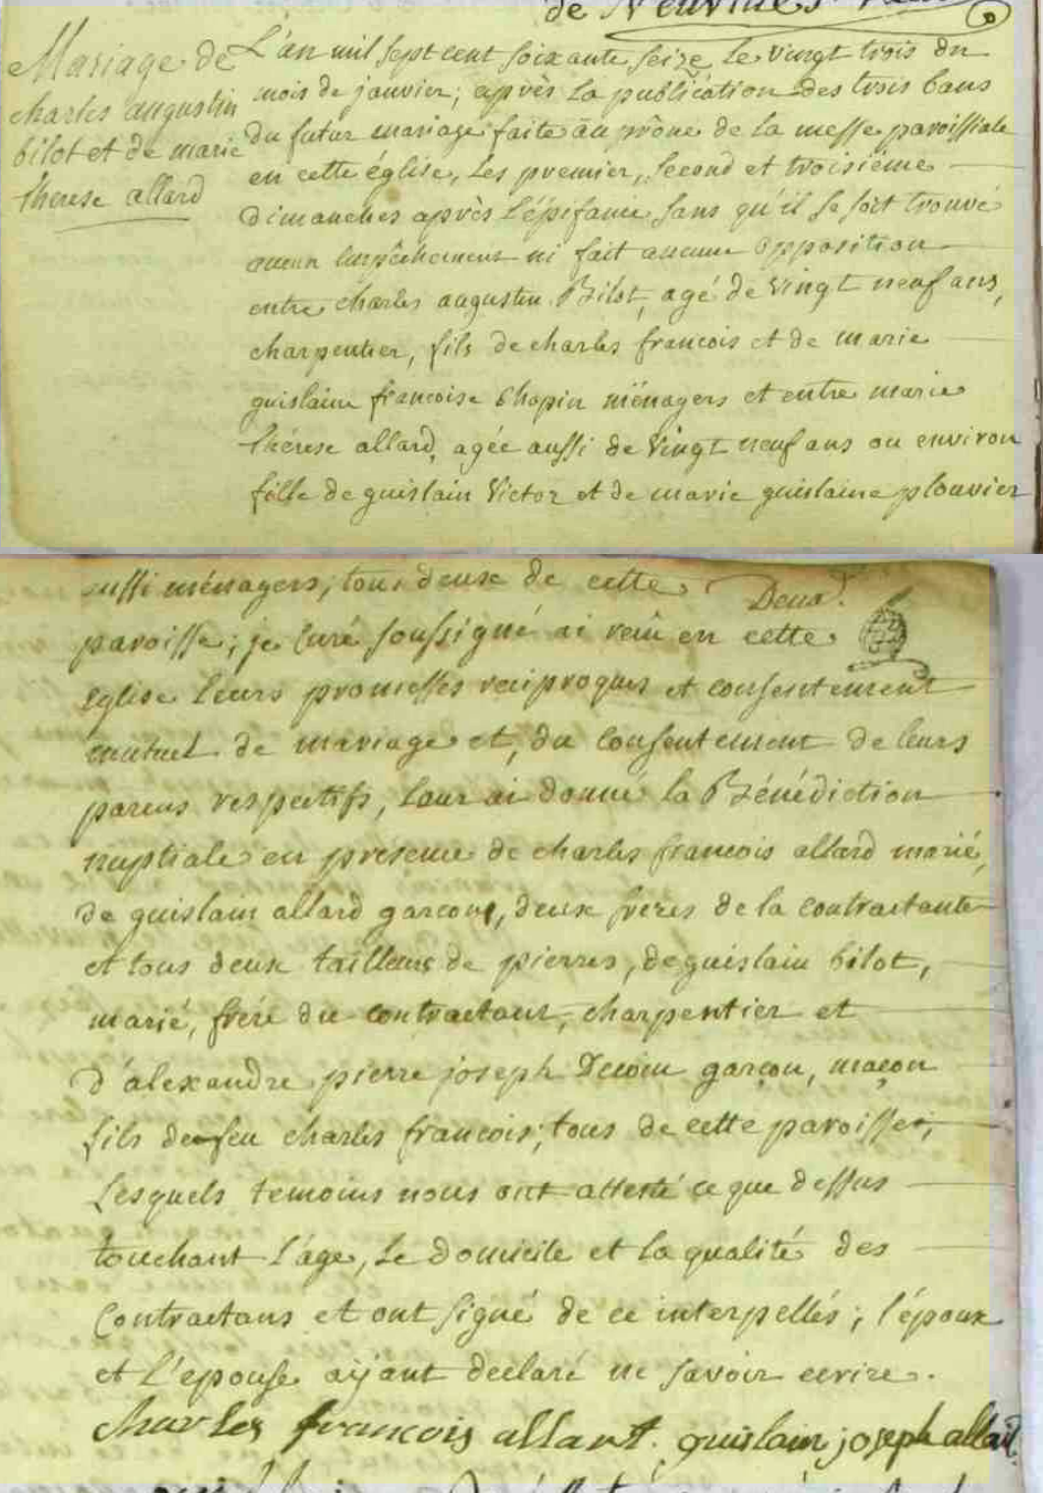 de Neuville St
Mariage de
charles augustin
bilot et de marie
therese allard
L'an mil sept cent soixante seize le vingt trois du
mois de janvier; après la publication des trois bans
du futur mariage faite au prône de la messe paroissiale
en cette église, les premier, second et troisiéme
dimanches après l'épifanie sans qu'il se soit trouvé
aucun empêchement ni fait aucune opposition
entre charles augustin Bilot, agé de vingt neuf ans,
charpentier, fils de charles francois et de marie
guislaine francoise Chopin ménagers et entre marie
thérese allard, agée aussi de vingt neuf ans ou environ
fille de guislain Victor et de marie guislaine plouvier
aussi ménagers, tous deux de cette
Deux
paroisse; je curé soussigné ai recu en cette
église leurs promesses reciproques et consentement
mutuel de mariage et, du consentement de leurs
parens respectifs, leur ai donné la Bénédiction
nuptiale en présence de charles francois allard marié,
de guislain allard garcons, deux freres de la contractante
et tous deux tailleurs de pierres, de guislain bilot,
marié, frére du contractant, charpentier et
d'alexandre pierre joseph garçon, maçon
fils de feu charles francois; tous de cette paroisse;
Lesquels temoins nous ont attesté ce que dessus
touchant l'áge, le domicile et la qualité des
Contractans et ont signé de ce interpellés; l'époux
et l'epouse aÿant declaré ne savoir ecrire.
charles francois allart. guislain joseph allard